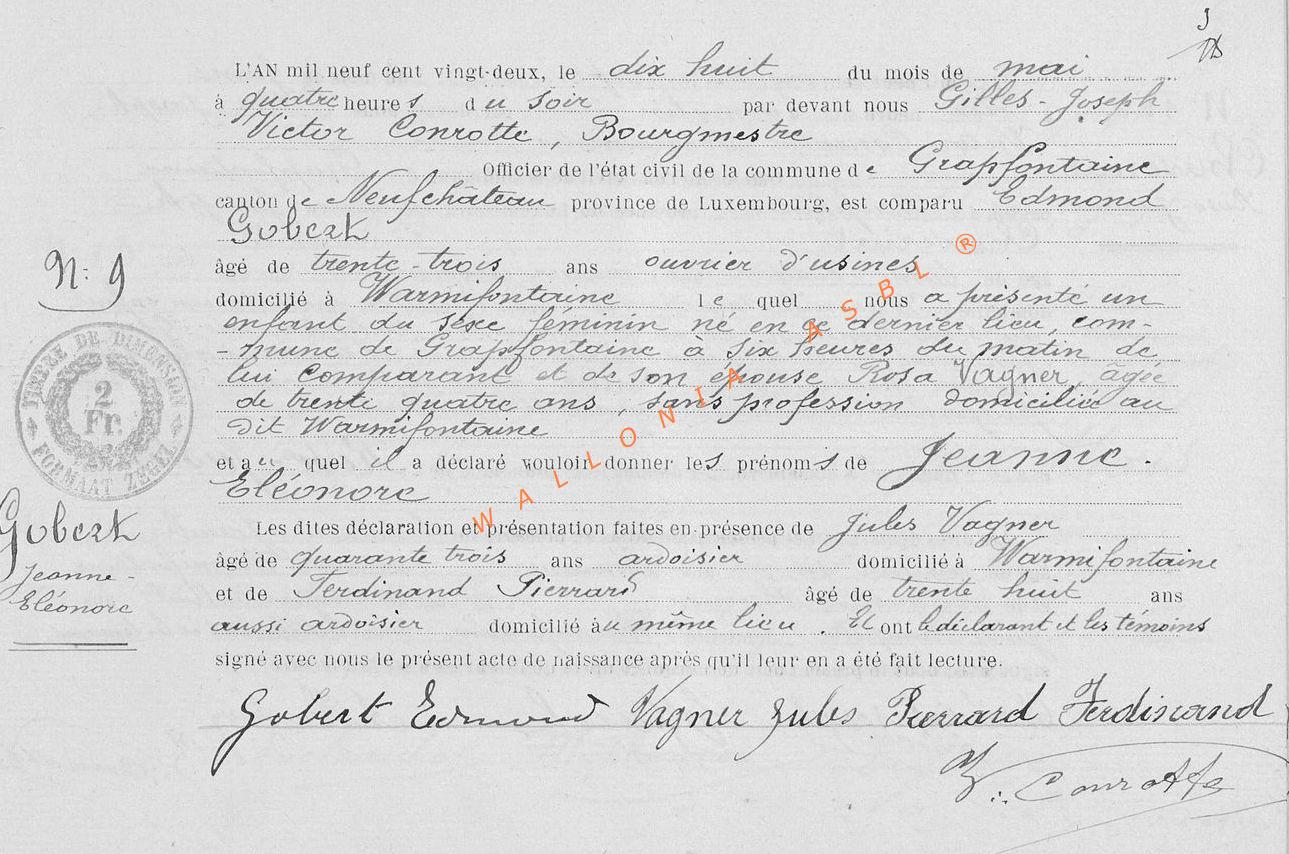 L'AN mil neuf cent vingt-deux, le dix huit du mois de mai
à quatre heures du soir par devant nous Gilles-Joseph
Victor Conrotte, Bourgmestre
Officier de l'état civil de la commune de Grapfontaine
canton de Neufchâteau province de Luxembourg, est comparu Edmond
Gobert
âgé de trente-trois ans ouvrier d'usines
domicilié à Warmifontaine lequel nous a présenté un
enfant du sexe féminin né en ce dernier lieu, com-
-mune de Grapfontaine à six heures du matin de
lui comparant et de son épouse Rosa Vagner, agée
de trente quatre ans, sans profession domiciliée au
dit Warmifontaine
et auquel il a déclaré vouloir donner les prénoms de Jeanne.
Eléonore
Les dites déclaration et présentation faites en présence de Jules Vagner
âgé de quarante trois ans ardoisier domicilié à Warmifontaine
et de Ferdinand Pierrard âgé de trente huit ans
aussi ardoisier domicilié au même lieu. Et ont le déclarant et les témoins
signé avec nous le présent acte de naissance après qu'il leur en a été fait lecture.
Gobert Edmond Vagner Jules Pierrard Ferdinand
V. Conrotte
N: 9
TIMBRE DE DIMENSION
2
Fr.
FORMAAT ZEGEL
Gobert
Jeanne-
Eléonore
WALLONIA ASBL ®